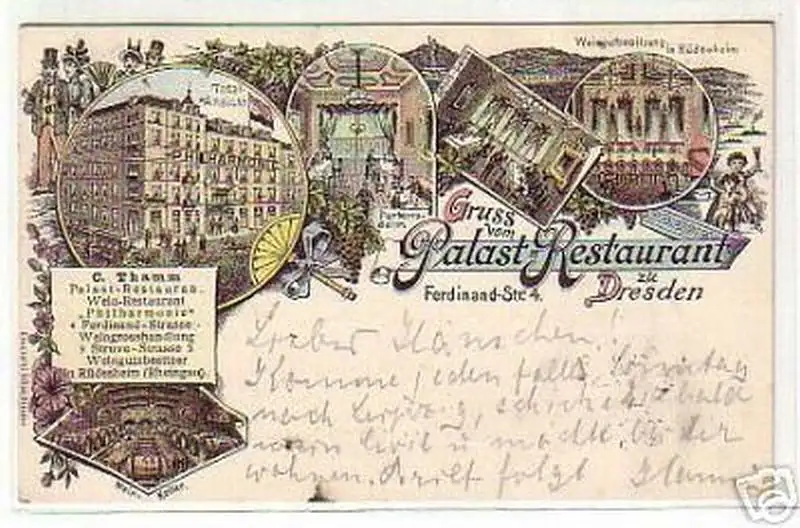 Total-
Ansicht
PHILHARMONIE
Parterre-
Weingutbesitzung
in Rüdesheim
Gruss
vom
Palast-Restaurant
zu
Dresden
Ferdinand-Str. 4.
C. Thamm
Palast-Restauran
Wein-Restaurant
„Philharmonie"
4 Ferdinand-Strasse
Weingrosshandlung
Struve-Strasse
Weingutsbesitzer
in Rüdesheim (Rheingau)
Wein-Keller.
Lieber Hänschen!
Komme jedenfalls Sonntag
nach Leipzig, schicke bald
mein Civil u möchte bei dir
wohnen. Brief folgt
ebay